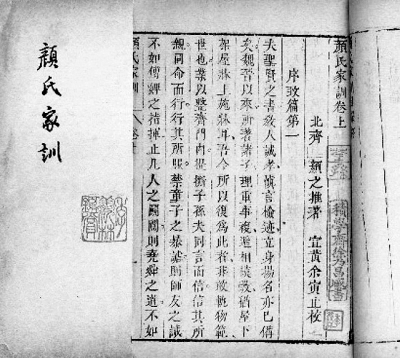 顏氏家訓卷上
北齊 顏之推著 宜黃余寅止校
序致篇第一
夫聖賢之書教人誠孝慎言檢迹立身揚名亦已備
矣魏晉以來所著諸子理重事複遞相模斆猶屋下
架屋牀上施牀耳吾今所以復爲此者非敢軌物範
世也業以整齊門內提撕子孫夫同言而信信其所
親同命而行行其所服禁童子之暴謔則師友之誡
不如傅婢之指揮止凡人之鬬鬩則堯舜之道不如
顏氏家訓 卷上
積學齋徐乃昌藏書
顏氏家訓